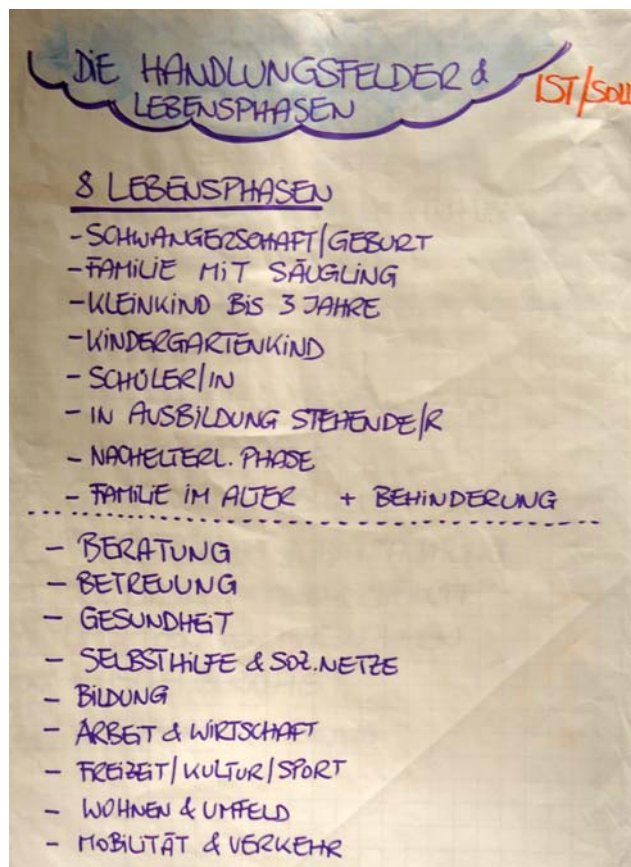 DIE HANDLUNGSFELDER & IST/SOLL
LEBENSPHASEN
8 LEBENSPHASEN
- SCHWANGERSCHAFT/GEBURT
- FAMILIE MIT SÄUGLING
- KLEINKIND BIS 3 JAHRE
- KINDERGARTENKIND
- SCHÜLER/IN
- IN AUSBILDUNG STEHENDE/R
- NACHELTERL. PHASE
- FAMILIE IM ALTER + BEHINDERUNG
- BERATUNG
- BETREUUNG
- GESUNDHEIT
- SELBSTHILFE & SOZ. NETZE
- BILDUNG
- ARBEIT & WIRTSCHAFT
- FREIZEIT/KULTUR/SPORT
- WOHNEN & UMFELD
- MOBILITÄT & VERKEHR